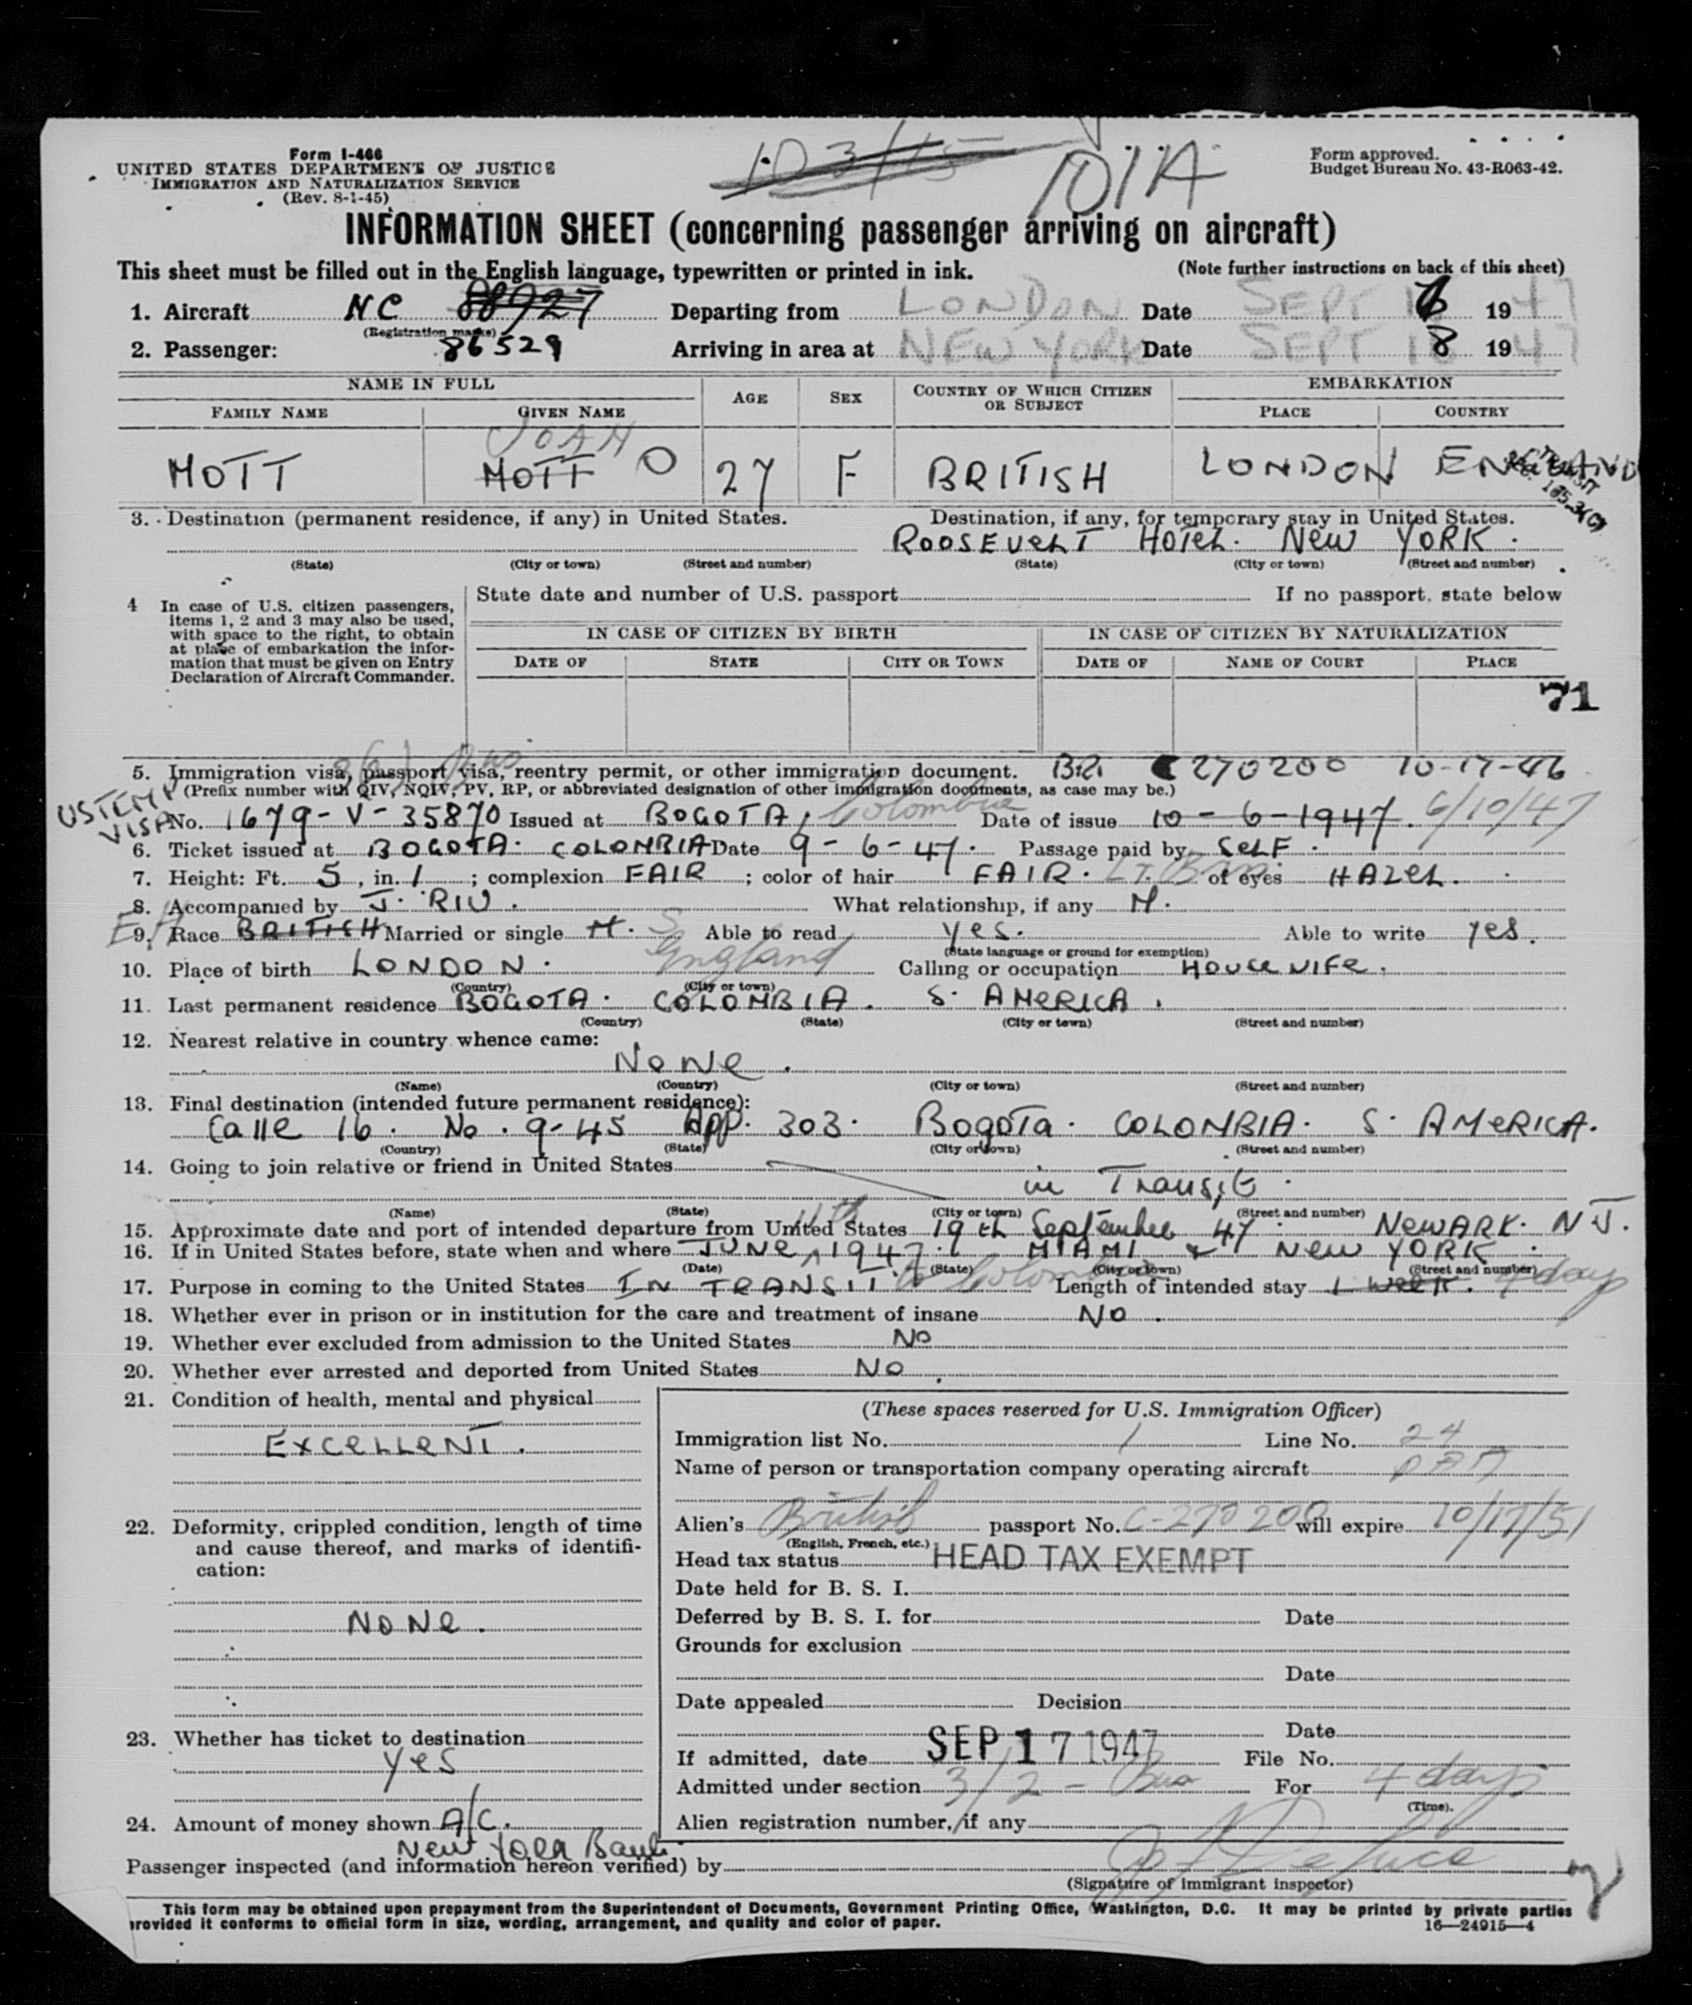 Form I-466
UNITED STATES DEPARTMENT OF JUSTICE
IMMIGRATION AND NATURALIZATION SERVICE
(Rev. 8-1-45)
103/15
101A
Form approved.
Budget Bureau No. 43-R063-42.
INFORMATION SHEET (concerning passenger arriving on aircraft)
This sheet must be filled out in the English language, typewritten or printed in ink.
(Note further instructions on back of this sheet)
1. Aircraft NC 88927 Departing from LONDON Date SEPT 16 1947
(Registration marks)
2. Passenger: 86529 Arriving in area at NEW YORK Date SEPT 18 1947
NAME IN FULL
FAMILY NAME GIVEN NAME AGE SEX COUNTRY OF WHICH CITIZEN OR SUBJECT EMBARKATION PLACE COUNTRY
JOAN
MOTT MOTT O 27 F BRITISH LONDON ENGLAND
3. Destination (permanent residence, if any) in United States. Destination, if any, for temporary stay in United States.
ROOSEVELT HOTEL. NEW YORK.
(State) (City or town) (Street and number) (State) (City or town) (Street and number)
4 In case of U.S. citizen passengers, items 1, 2 and 3 may also be used, with space to the right, to obtain at place of embarkation the information that must be given on Entry Declaration of Aircraft Commander.
State date and number of U.S. passport If no passport, state below
IN CASE OF CITIZEN BY BIRTH IN CASE OF CITIZEN BY NATURALIZATION
DATE OF STATE CITY OR TOWN DATE OF NAME OF COURT PLACE
71
5. Immigration visa, passport visa, reentry permit, or other immigration document. BR. C270200 10-17-46
(Prefix number with QIV, NQIV, PV, RP, or abbreviated designation of other immigration documents, as case may be.)
US TEMP VISA
No. 1679-V-35870 Issued at BOGOTA, Colombia Date of issue 10-6-1947. 6/10/47
6. Ticket issued at BOGOTA. COLOMBIA Date 9-6-47. Passage paid by SELF.
7. Height: Ft. 5, in. 1; complexion FAIR; color of hair FAIR. LT. BRN. of eyes HAZEL.
8. Accompanied by J. RIV. What relationship, if any M.
9. Race BRITISH Married or single M. S Able to read yes. Able to write yes.
(State language or ground for exemption)
10. Place of birth LONDON. England Calling or occupation HOUSEWIFE.
(Country) (City or town)
11. Last permanent residence BOGOTA. COLOMBIA. S. AMERICA.
(Country) (State) (City or town) (Street and number)
12. Nearest relative in country whence came:
NONE.
(Name) (Country) (City or town) (Street and number)
13. Final destination (intended future permanent residence):
Calle 16. No. 9-45 App. 303. Bogota. COLOMBIA. S. AMERICA.
(Country) (State) (City or town) (Street and number)
14. Going to join relative or friend in United States
in Transit.
(Name) (State) (City or town) (Street and number)
15. Approximate date and port of intended departure from United States 19th September 47. NEWARK. N J.
16. If in United States before, state when and where 11th JUNE, 1947. MIAMI & NEW YORK.
(Date) (State) (City or town) (Street and number)
17. Purpose in coming to the United States IN TRANSIT. to Colombia Length of intended stay 1 week. 4 days
18. Whether ever in prison or in institution for the care and treatment of insane NO.
19. Whether ever excluded from admission to the United States NO
20. Whether ever arrested and deported from United States NO.
21. Condition of health, mental and physical
EXCELLENT.
22. Deformity, crippled condition, length of time and cause thereof, and marks of identification:
NONE.
23. Whether has ticket to destination
yes
24. Amount of money shown A/C.
New York Bank.
(These spaces reserved for U.S. Immigration Officer)
Immigration list No. 1 Line No. 24
Name of person or transportation company operating aircraft PAA
Alien's British passport No. C-270200 will expire 10/17/51
(English, French, etc.)
Head tax status HEAD TAX EXEMPT
Date held for B. S. I.
Deferred by B. S. I. for Date
Grounds for exclusion
Date
Date appealed Decision
Date
If admitted, date SEP 17 1947 File No.
Admitted under section 3/2 - For 4 days
(Time).
Alien registration number, if any
Passenger inspected (and information hereon verified) by
(Signature of immigrant inspector)
This form may be obtained upon prepayment from the Superintendent of Documents, Government Printing Office, Washington, D.C. It may be printed by private parties
provided it conforms to official form in size, wording, arrangement, and quality and color of paper.
16—24915—4